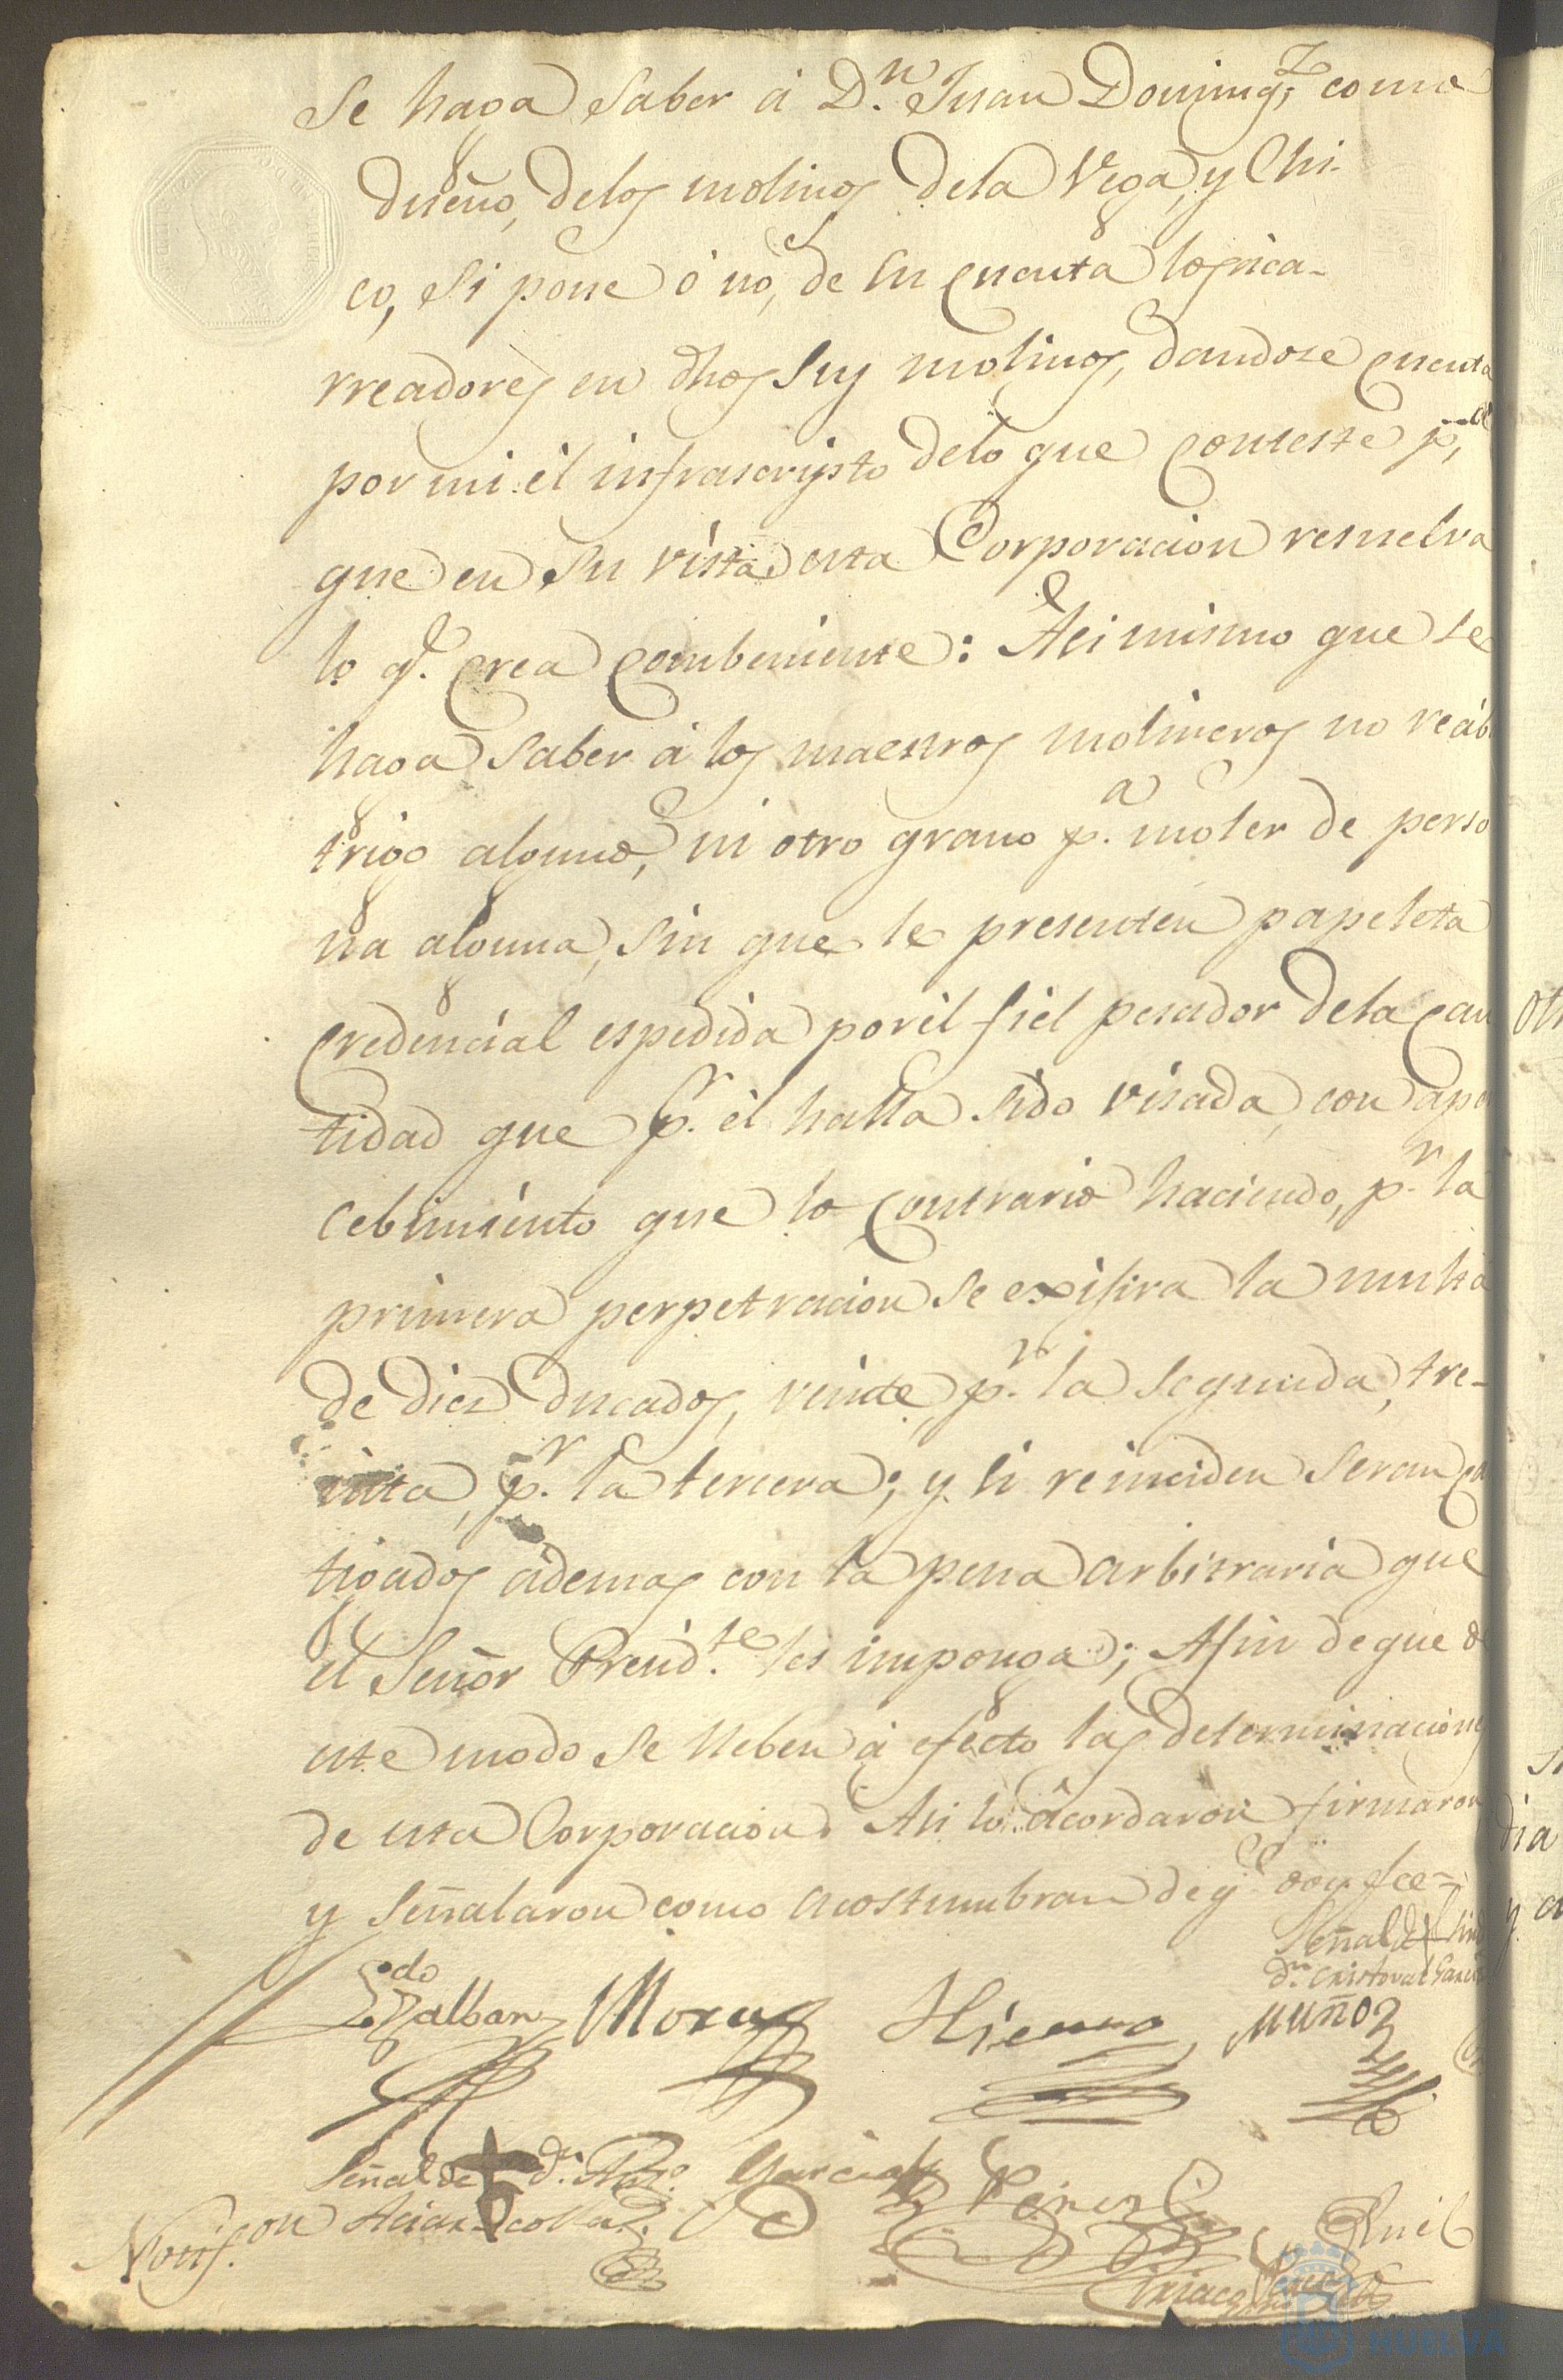 Se haga saber á D.n Juan Doming.z como
dueño, delos molinos dela Vega, y Chi-
co, si pone ó nó, de su cuenta los rica-
rreadores en dhos sus molinos, dandose cuenta
por mi él infrascripto delo que conteste p.a
que en su vista esta Corporacion resuelva
lo q.e crea combeniente: Asi mismo que se
haga saber á los maestros molineros no reáb
trigo alguno, ni otro grano p.a moler de perso
na alguna, sin que le presenten papeleta
credencial espedida por él fiel pesador dela can
tidad que p.r él halla sido visada, con aper
cebimiento que lo contrario haciendo, p.r la
primera perpetracion se exijira la multa
de diez ducados, veinte p.r la segunda, tre-
inta, p.r la tercera; y si reinciden seran cas
tigados ademas con la pena arbitraria que
el Señor Presid.te les imponga; Afin de que de
este modo se lleben á efecto las determinaciones
de esta Corporacion. Asi lo acordaron firmaron
y señalaron como acostumbran de q.e doy fee=
Señal de
d.n Cristoval Garcia
L.do Zalbar Mora Hierro Muñoz
Señal de d.n
Garcia Perez
Notif.on
HUELVA